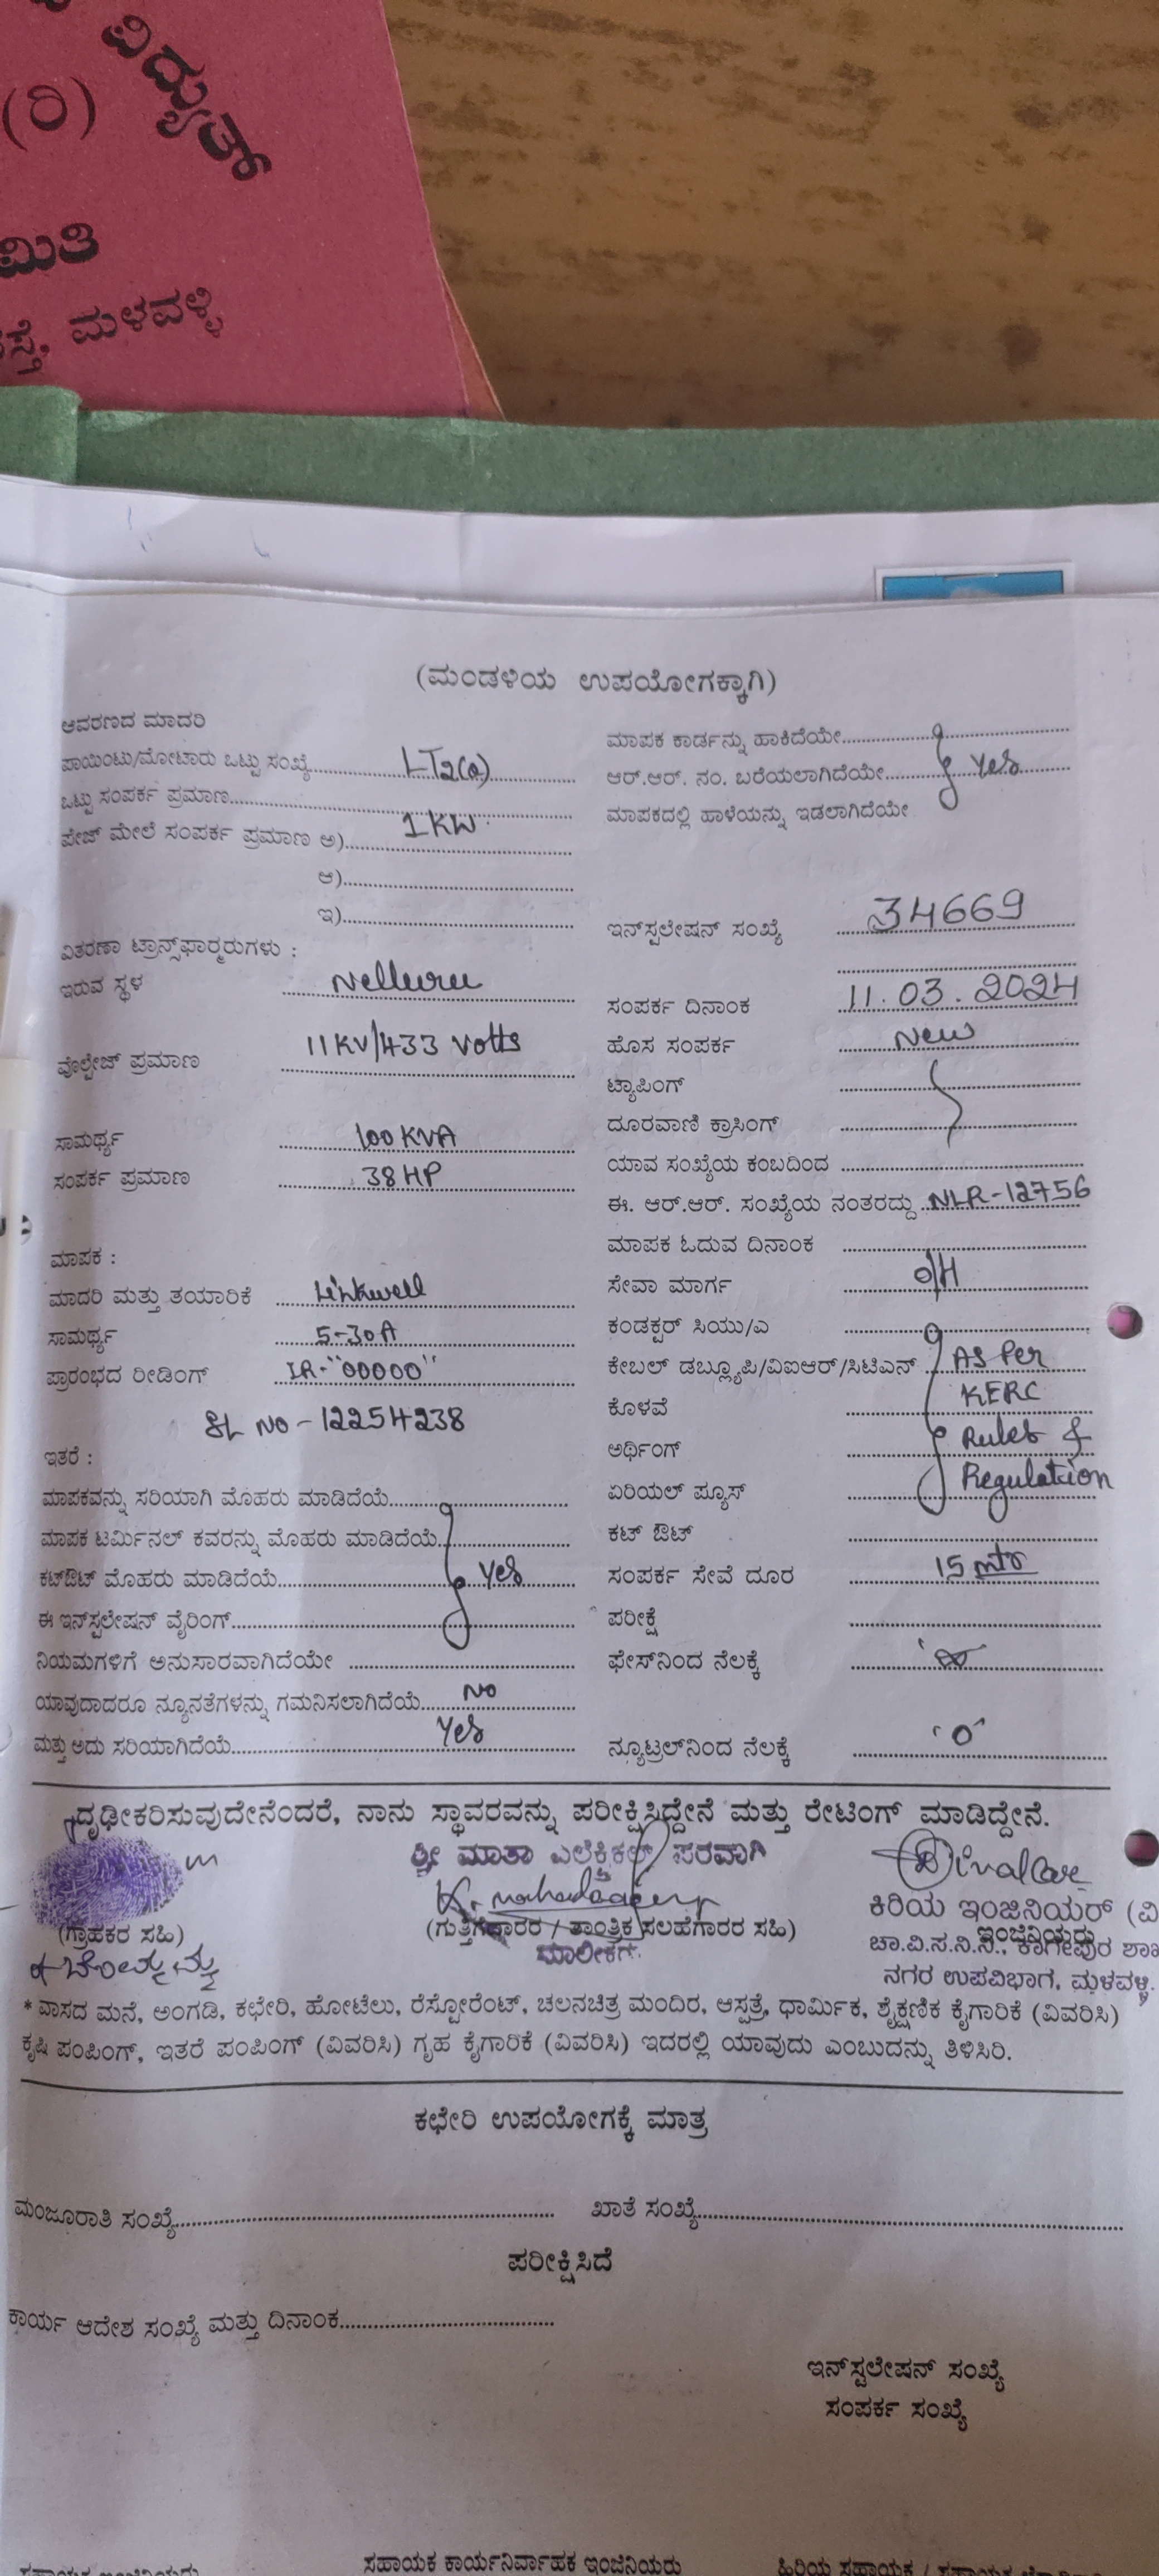 ವಿದ್ಯುತ್
(ರಿ)
ಮಿತಿ
ಮಳವಳ್ಳಿ
(ಮಂಡಳಿಯ ಉಪಯೋಗಕ್ಕಾಗಿ)
ಆವರಣದ ಮಾದರಿ
ಪಾಯಿಂಟು/ಮೋಟಾರು ಒಟ್ಟು ಸಂಖ್ಯೆ LT2(a)
ಒಟ್ಟು ಸಂಪರ್ಕ ಪ್ರಮಾಣ
ಪೇಜ್ ಮೇಲೆ ಸಂಪರ್ಕ ಪ್ರಮಾಣ ಅ) 1KW
ಆ)
ಇ)
ವಿತರಣಾ ಟ್ರಾನ್ಸ್‌ಫಾರ್ಮರುಗಳು :
ಇರುವ ಸ್ಥಳ Nelluru
ವೊಲ್ಟೇಜ್ ಪ್ರಮಾಣ 11KV/433 Volts
ಸಾಮರ್ಥ್ಯ 100KVA
ಸಂಪರ್ಕ ಪ್ರಮಾಣ 38HP
ಮಾಪಕ :
ಮಾದರಿ ಮತ್ತು ತಯಾರಿಕೆ Linkwell
ಸಾಮರ್ಥ್ಯ 5-30A
ಪ್ರಾರಂಭದ ರೀಡಿಂಗ್ IR-"00000"
SL NO - 12254238
ಇತರೆ :
ಮಾಪಕವನ್ನು ಸರಿಯಾಗಿ ಮೊಹರು ಮಾಡಿದೆಯೆ
ಮಾಪಕ ಟರ್ಮಿನಲ್ ಕವರನ್ನು ಮೊಹರು ಮಾಡಿದೆಯೆ
ಕಟ್‌ಔಟ್ ಮೊಹರು ಮಾಡಿದೆಯೆ Yes
ಈ ಇನ್‌ಸ್ಟಲೇಷನ್ ವೈರಿಂಗ್
ನಿಯಮಗಳಿಗೆ ಅನುಸಾರವಾಗಿದೆಯೇ
ಯಾವುದಾದರೂ ನ್ಯೂನತೆಗಳನ್ನು ಗಮನಿಸಲಾಗಿದೆಯೆ NO
ಮತ್ತು ಅದು ಸರಿಯಾಗಿದೆಯೆ Yes
ಮಾಪಕ ಕಾರ್ಡನ್ನು ಹಾಕಿದೆಯೇ
ಆರ್.ಆರ್. ನಂ. ಬರೆಯಲಾಗಿದೆಯೇ Yes
ಮಾಪಕದಲ್ಲಿ ಹಾಳೆಯನ್ನು ಇಡಲಾಗಿದೆಯೇ
ಇನ್‌ಸ್ಟಲೇಷನ್ ಸಂಖ್ಯೆ 34669
ಸಂಪರ್ಕ ದಿನಾಂಕ 11.03.2024
ಹೊಸ ಸಂಪರ್ಕ New
ಟ್ಯಾಪಿಂಗ್
ದೂರವಾಣಿ ಕ್ರಾಸಿಂಗ್
ಯಾವ ಸಂಖ್ಯೆಯ ಕಂಬದಿಂದ
ಈ. ಆರ್.ಆರ್. ಸಂಖ್ಯೆಯ ನಂತರದ್ದು NLR-12756
ಮಾಪಕ ಓದುವ ದಿನಾಂಕ
ಸೇವಾ ಮಾರ್ಗ O/H
ಕಂಡಕ್ಟರ್ ಸಿಯು/ಎ
ಕೇಬಲ್ ಡಬ್ಲ್ಯೂಪಿ/ವಿಐಆರ್/ಸಿಟಿಎನ್ As Per
ಕೊಳವೆ KERC
ಅರ್ಥಿಂಗ್ Rules &
ಏರಿಯಲ್ ಪ್ಯೂಸ್ Regulation
ಕಟ್ ಔಟ್
ಸಂಪರ್ಕ ಸೇವೆ ದೂರ 15 mtr
ಪರೀಕ್ಷೆ
ಫೇಸ್‌ನಿಂದ ನೆಲಕ್ಕೆ
ನ್ಯೂಟ್ರಲ್‌ನಿಂದ ನೆಲಕ್ಕೆ 'O'
ದೃಢೀಕರಿಸುವುದೇನೆಂದರೆ, ನಾನು ಸ್ಥಾವರವನ್ನು ಪರೀಕ್ಷಿಸಿದ್ದೇನೆ ಮತ್ತು ರೇಟಿಂಗ್ ಮಾಡಿದ್ದೇನೆ.
ಶ್ರೀ ಮಾತಾ ಎಲೆಕ್ಟ್ರಿಕಲ್ ಪರವಾಗಿ
(ಗ್ರಾಹಕರ ಸಹಿ)
(ಗುತ್ತಿಗೆದಾರರ / ತಾಂತ್ರಿಕ ಸಲಹೆಗಾರರ ಸಹಿ)
ಮಾಲೀಕರು
ಕಿರಿಯ ಇಂಜಿನಿಯರ್ (ವಿ
ಇಂಜಿನಿಯರು
ಚಾ.ವಿ.ಸ.ನಿ.ನಿ., ಕಾಗೇಪುರ ಶಾಖ
ನಗರ ಉಪವಿಭಾಗ, ಮಳವಳ್ಳಿ.
*ವಾಸದ ಮನೆ, ಅಂಗಡಿ, ಕಛೇರಿ, ಹೋಟೆಲು, ರೆಸ್ಟೋರೆಂಟ್, ಚಲನಚಿತ್ರ ಮಂದಿರ, ಆಸ್ಪತ್ರೆ, ಧಾರ್ಮಿಕ, ಶೈಕ್ಷಣಿಕ ಕೈಗಾರಿಕೆ (ವಿವರಿಸಿ)
ಕೃಷಿ ಪಂಪಿಂಗ್, ಇತರೆ ಪಂಪಿಂಗ್ (ವಿವರಿಸಿ) ಗೃಹ ಕೈಗಾರಿಕೆ (ವಿವರಿಸಿ) ಇದರಲ್ಲಿ ಯಾವುದು ಎಂಬುದನ್ನು ತಿಳಿಸಿರಿ.
ಕಛೇರಿ ಉಪಯೋಗಕ್ಕೆ ಮಾತ್ರ
ಮಂಜೂರಾತಿ ಸಂಖ್ಯೆ ಖಾತೆ ಸಂಖ್ಯೆ
ಪರೀಕ್ಷಿಸಿದೆ
ಕಾರ್ಯ ಆದೇಶ ಸಂಖ್ಯೆ ಮತ್ತು ದಿನಾಂಕ
ಇನ್‌ಸ್ಟಲೇಷನ್ ಸಂಖ್ಯೆ
ಸಂಪರ್ಕ ಸಂಖ್ಯೆ
ಸಹಾಯಕ ಕಾರ್ಯನಿರ್ವಾಹಕ ಇಂಜಿನಿಯರು